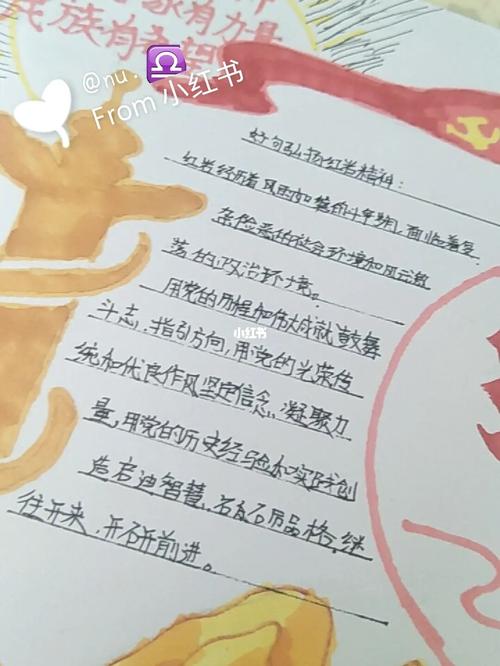 家有力量
民族有
@nu.
From 小红书
好句弘扬红岩精神：
红岩经历着风雨如磐的斗争岁月，面临着复
杂险恶的社会环境和风云激
荡的政治环境。
用党的历程和伟大成就鼓舞
小红书
斗志，指引方向，用党的光荣传
统和优良作风坚定信念，凝聚力
量，用党的历史经验和实践创
造启迪智慧，砥砺品格，继
往开来，开研前进。